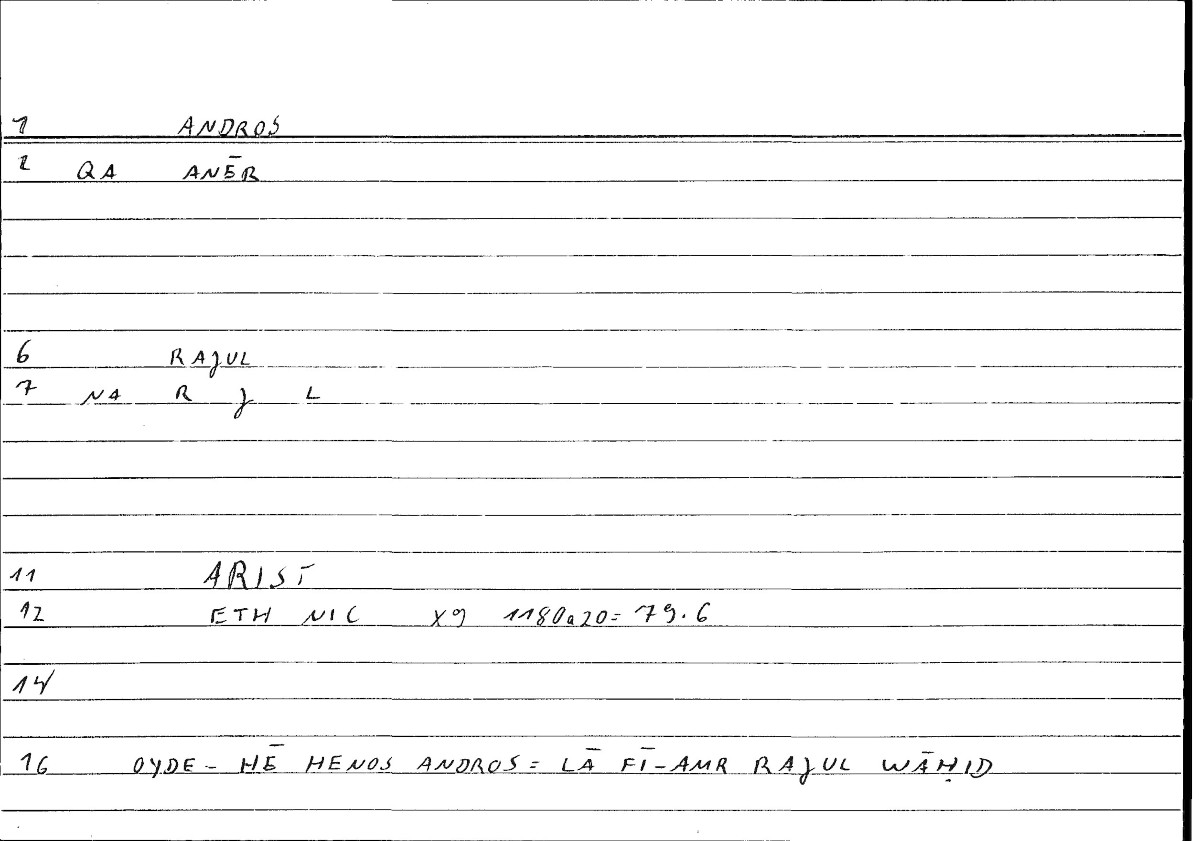 1 ANDROS
2 QA ANĒR
6 RAJUL
7 NA R J L
11 ARIST
12 ETH NIC X9 1180a20=79.6
14
16 OYDE-HĒ HENOS ANDROS = LĀ FĪ-AMR RAJUL WĀḤID